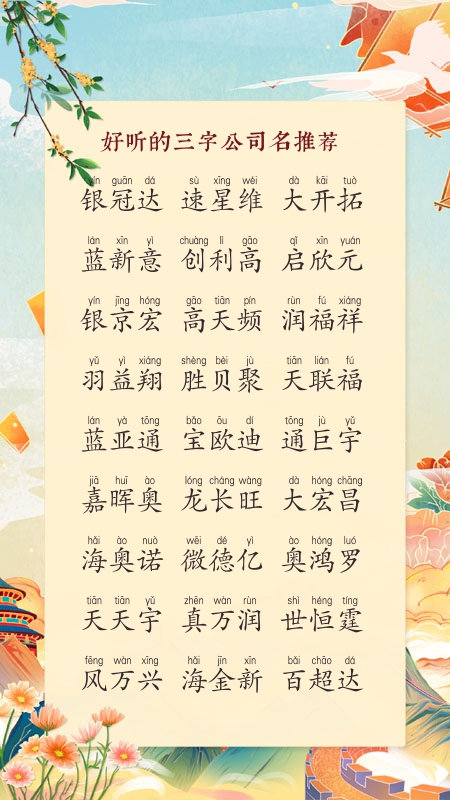 好听的三字公司名推荐
yín guān dá sù xīng wéi dà kāi tuò
银冠达 速星维 大开拓
lán xīn yì chuàng lì gāo qǐ xīn yuán
蓝新意 创利高 启欣元
yín jīng hóng gāo tiān pín rùn fú xiáng
银京宏 高天频 润福祥
yǔ yì xiáng shèng bèi jù tiān lián fú
羽益翔 胜贝聚 天联福
lán yà tōng bǎo ōu dí tōng jù yǔ
蓝亚通 宝欧迪 通巨宇
jiā huī ào lóng cháng wàng dà hóng chāng
嘉晖奥 龙长旺 大宏昌
hǎi ào nuò wēi dé yì ào hóng luó
海奥诺 微德亿 奥鸿罗
tiān tiān yǔ zhēn wàn rùn shì héng tíng
天天宇 真万润 世恒霆
fēng wàn xīng hǎi jīn xīn bǎi chāo dá
风万兴 海金新 百超达